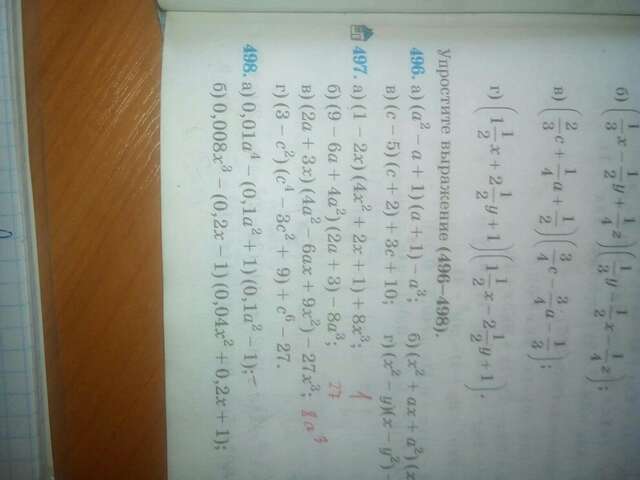 б) (1/3 x − 1/2 y + 1/4 z)(1/3 y − 1/2 x − 1/4 z);
в) (2/3 c + 1/4 a + 1/2)(3/4 c − 3/4 a − 1/3);
г) (1 1/2 x + 2 1/2 y + 1)(1 1/2 x − 2 1/2 y + 1).
Упростите выражение (496–498).
496. а) (a² − a + 1)(a + 1) − a³; б) (x² + ax + a²)(x
в) (c − 5)(c + 2) + 3c + 10; г) (x² − y)(x − y²) −
497. а) (1 − 2x)(4x² + 2x + 1) + 8x³; 1
б) (9 − 6a + 4a²)(2a + 3) − 8a³; 27
в) (2a + 3x)(4a² − 6ax + 9x²) − 27x³; 8a³
г) (3 − c²)(c⁴ − 3c² + 9) + c⁶ − 27.
498. а) 0,01a⁴ − (0,1a² + 1)(0,1a² − 1);
б) 0,008x³ − (0,2x − 1)(0,04x² + 0,2x + 1);